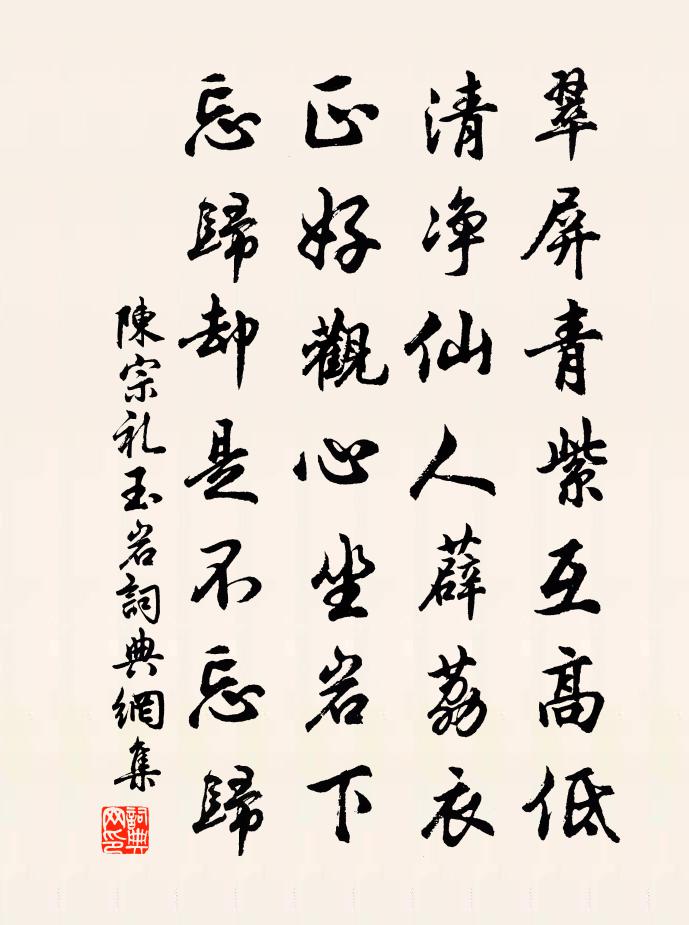 翠屏青紫互高低
清净仙人薜荔衣
正好觀心坐岩下
忘歸却是不忘歸
陳宗礼玉岩詞典網集
詞典
网印